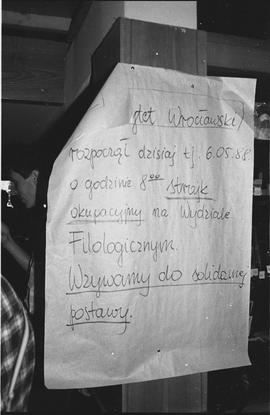 ytet Wrocławski)
rozpoczął dzisiaj tj. 6.05.88.
o godzinie 8⁰⁰ strajk
okupacyjny na Wydziale
Filologicznym.
Wzywamy do solidarnej
postawy.